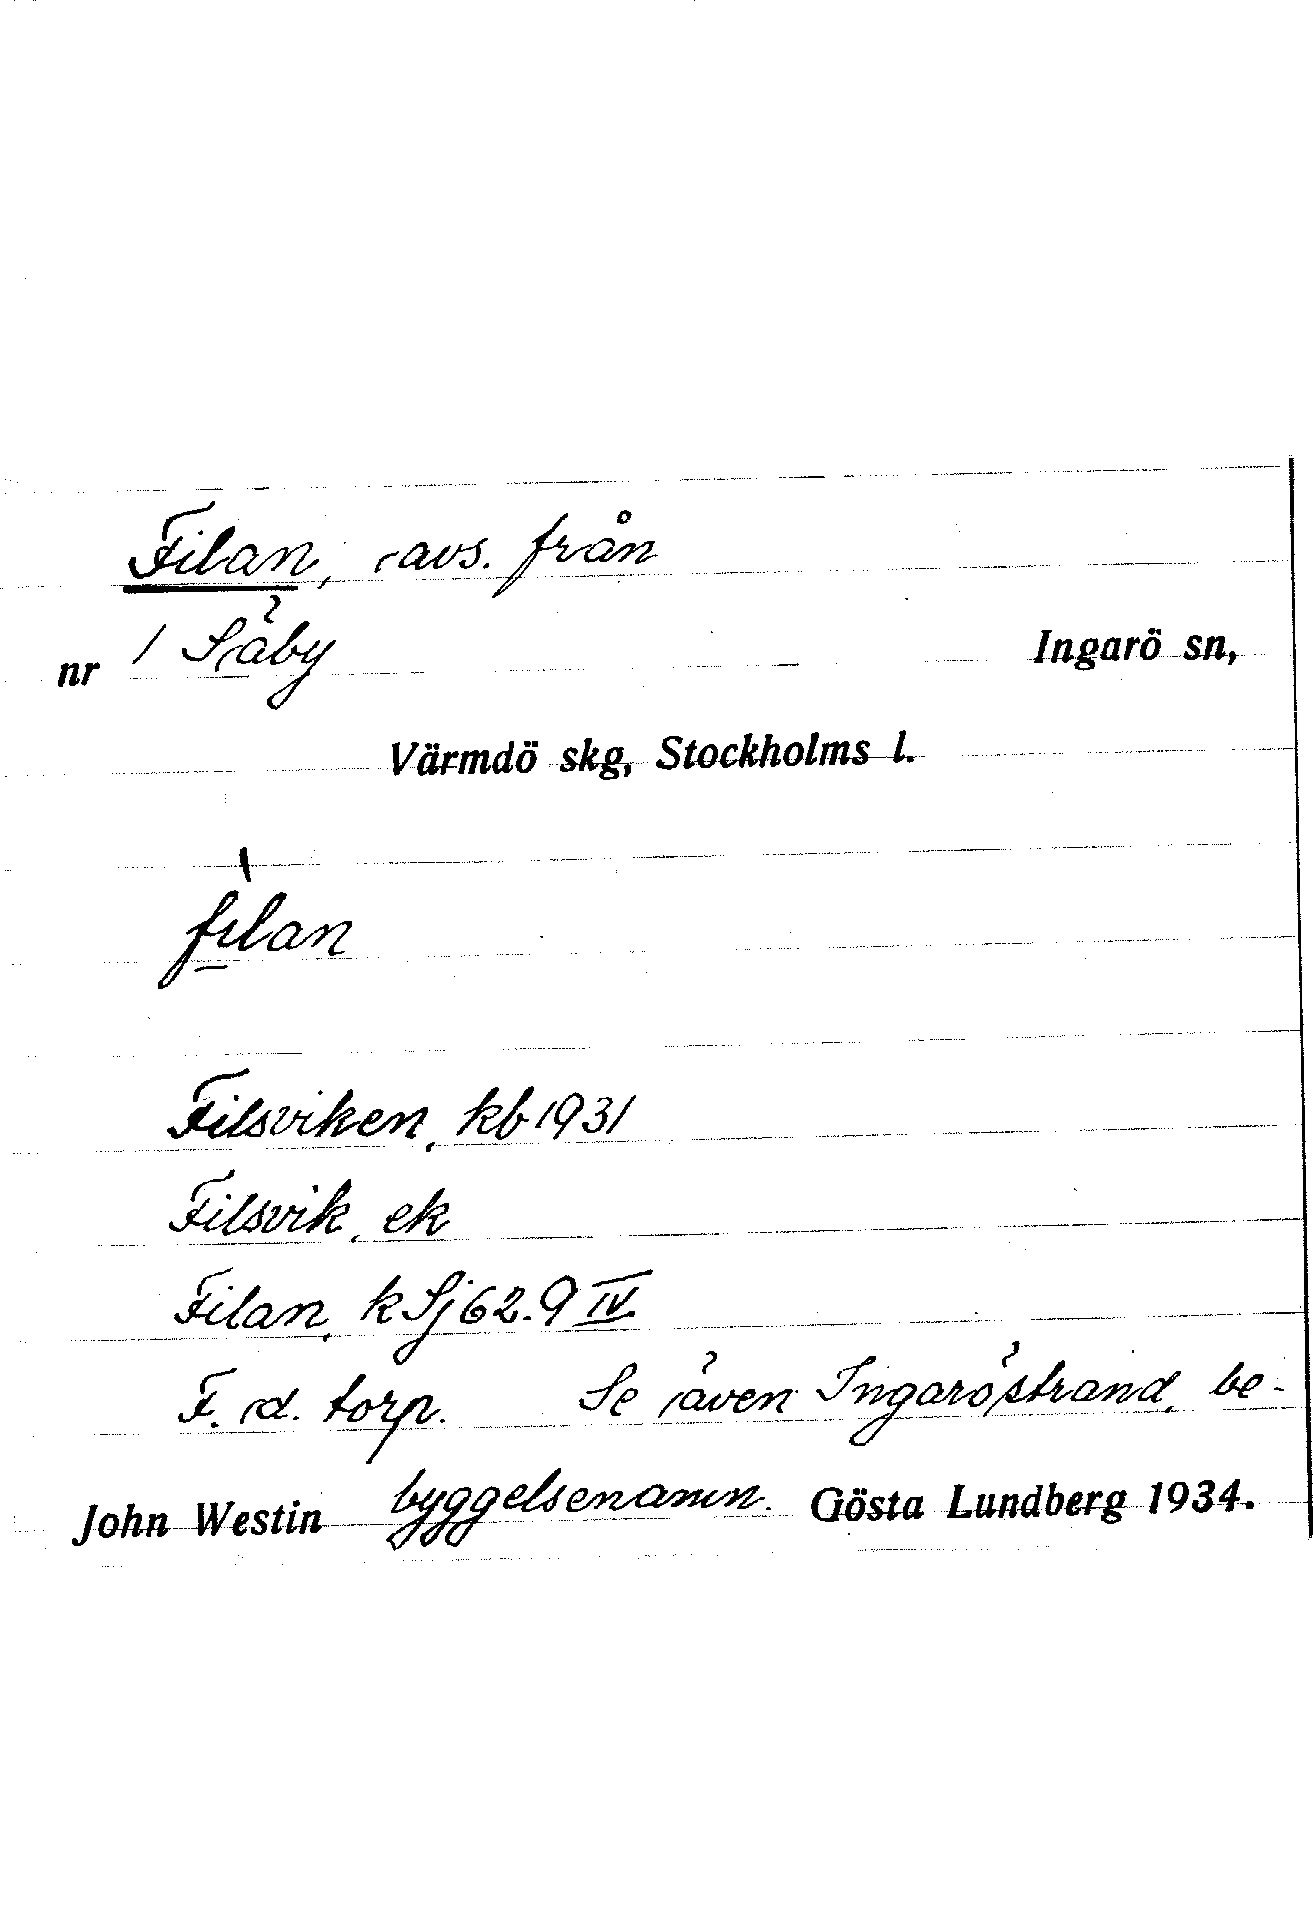 Filan, avs. från
nr 1 Säby Ingarö sn,
Värmdö skg, Stockholms l.
filan
Filsviken, kb 1931
Filsvik, ek
Filan, k Sj 62. 9 IV.
F. d. torp. Se även Ingaröstrand, be-
John Westin byggelsenamn. Gösta Lundberg 1934.